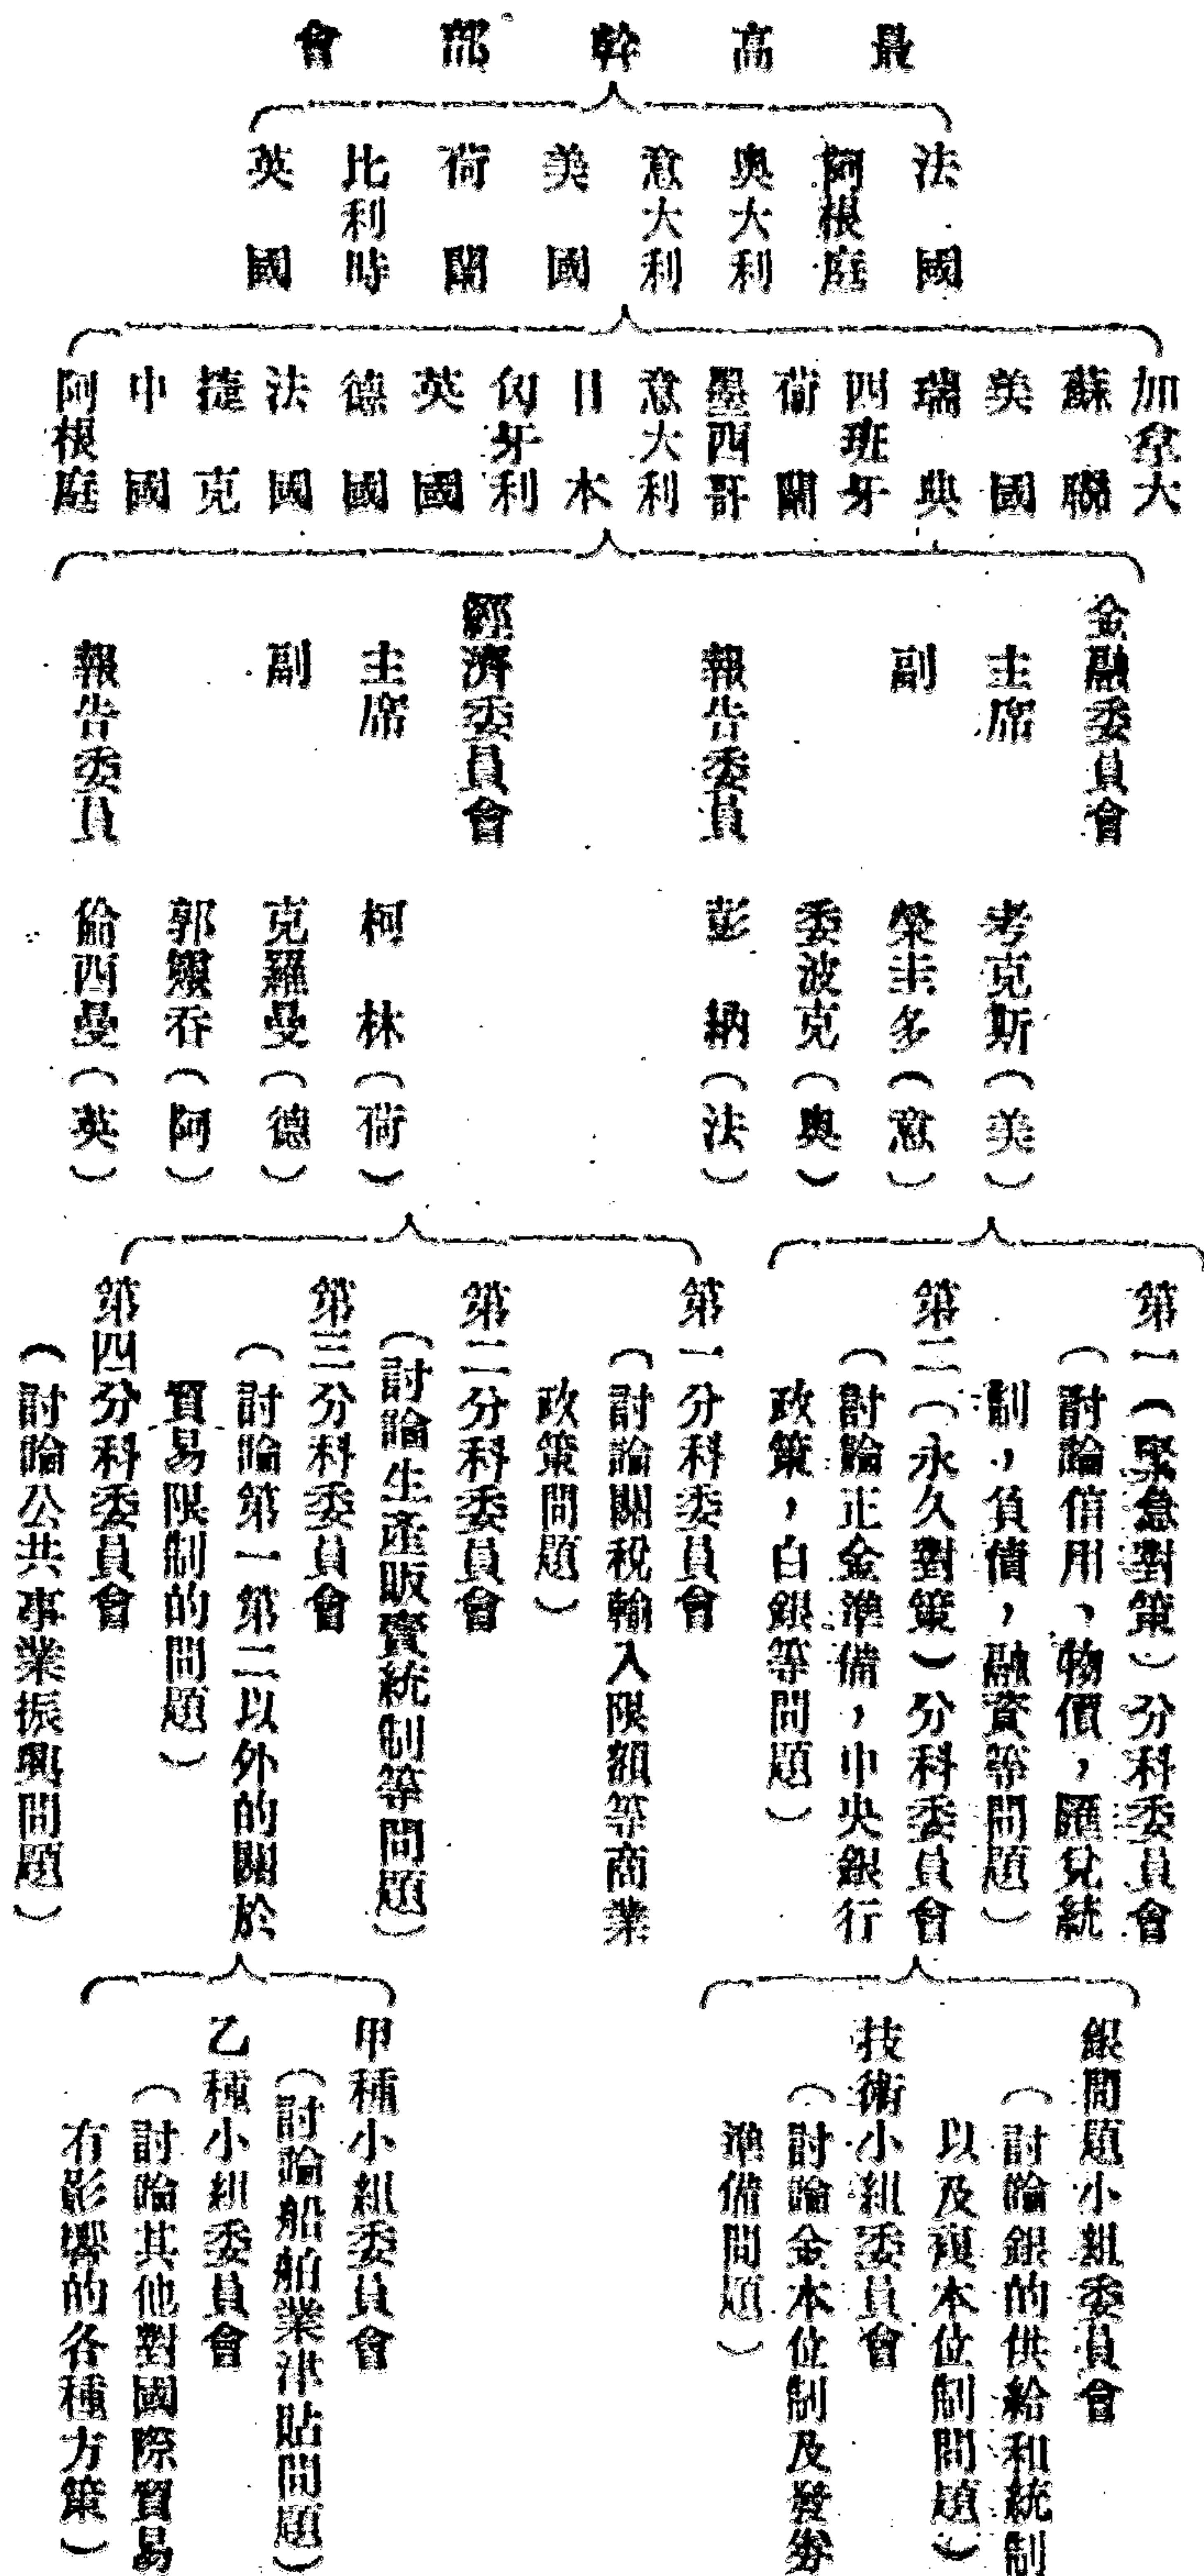 最高幹部會
法國
阿根庭
奧大利
意大利
美國
荷蘭
比利時
英國
加拿大
蘇聯
美國
瑞典
西班牙
荷蘭
墨西哥
意大利
日本
匈牙利
英國
德國
法國
捷克
中國
阿根庭
金融委員會
主席 考克斯(美)
副 榮圭多(意)
委波克(奧)
報告委員 彭納(法)
經濟委員會
主席 柯林(荷)
副 克羅曼(德)
郭爾吞(阿)
報告委員 倫西曼(英)
第一(緊急對策)分科委員會
(討論信用、物價,匯兌統
制,負債,融資等問題)
第二(永久對策)分科委員會
(討論正金準備,中央銀行
政策,白銀等問題)
第一分科委員會
(討論關稅輸入限額等商業
政策問題)
第二分科委員會
(討論生產販賣統制等問題)
第三分科委員會
(討論第一第二以外的關於
貿易限制的問題)
第四分科委員會
(討論公共事業振興問題)
銀問題小組委員會
(討論銀的供給和統制
以及複本位制問題)
技術小組委員會
(討論金本位制及發券
準備問題)
甲種小組委員會
(討論船舶業津貼問題)
乙種小組委員會
(討論其他對國際貿易
有影響的各種方策)